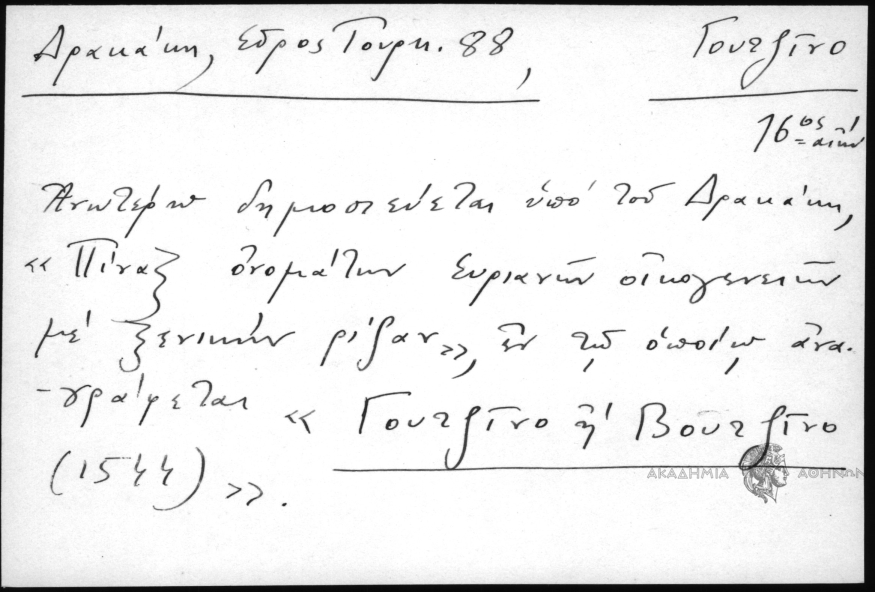 Δρακάκη, Σῦρος Τουρκ. 88, Γουτζῖνο
16ος αἰών
Ἀνωτέρω δημοσιεύεται ὑπό τοῦ Δρακάκη,
«Πίναξ ὀνομάτων Συριανῶν οἰκογενειῶν
μέ ξενικήν ρίζαν», ἐν τῷ ὁποίῳ ἀνα-
-γράφεται «Γουτζῖνο ἤ Βουτζῖνο
(1544)».
ΑΚΑΔΗΜΙΑ ΑΘΗΝΩΝ